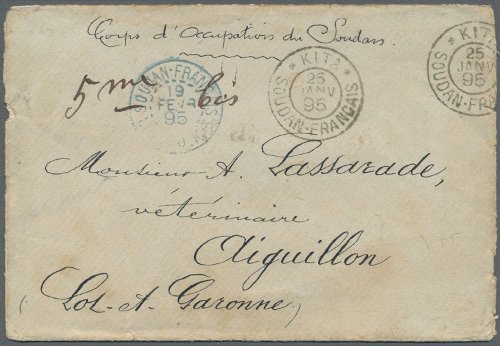 Corps d'Occupation du Soudan
5 me bis
SOUDAN-FRANÇAIS
19
FEVR
95
* KITA *
25
JANV
95
SOUDAN-FRANÇAIS
* KITA *
25
JANV
95
SOUDAN-FR
Monsieur A. Lassarade,
vétérinaire
Aiguillon
(Lot-et-Garonne)